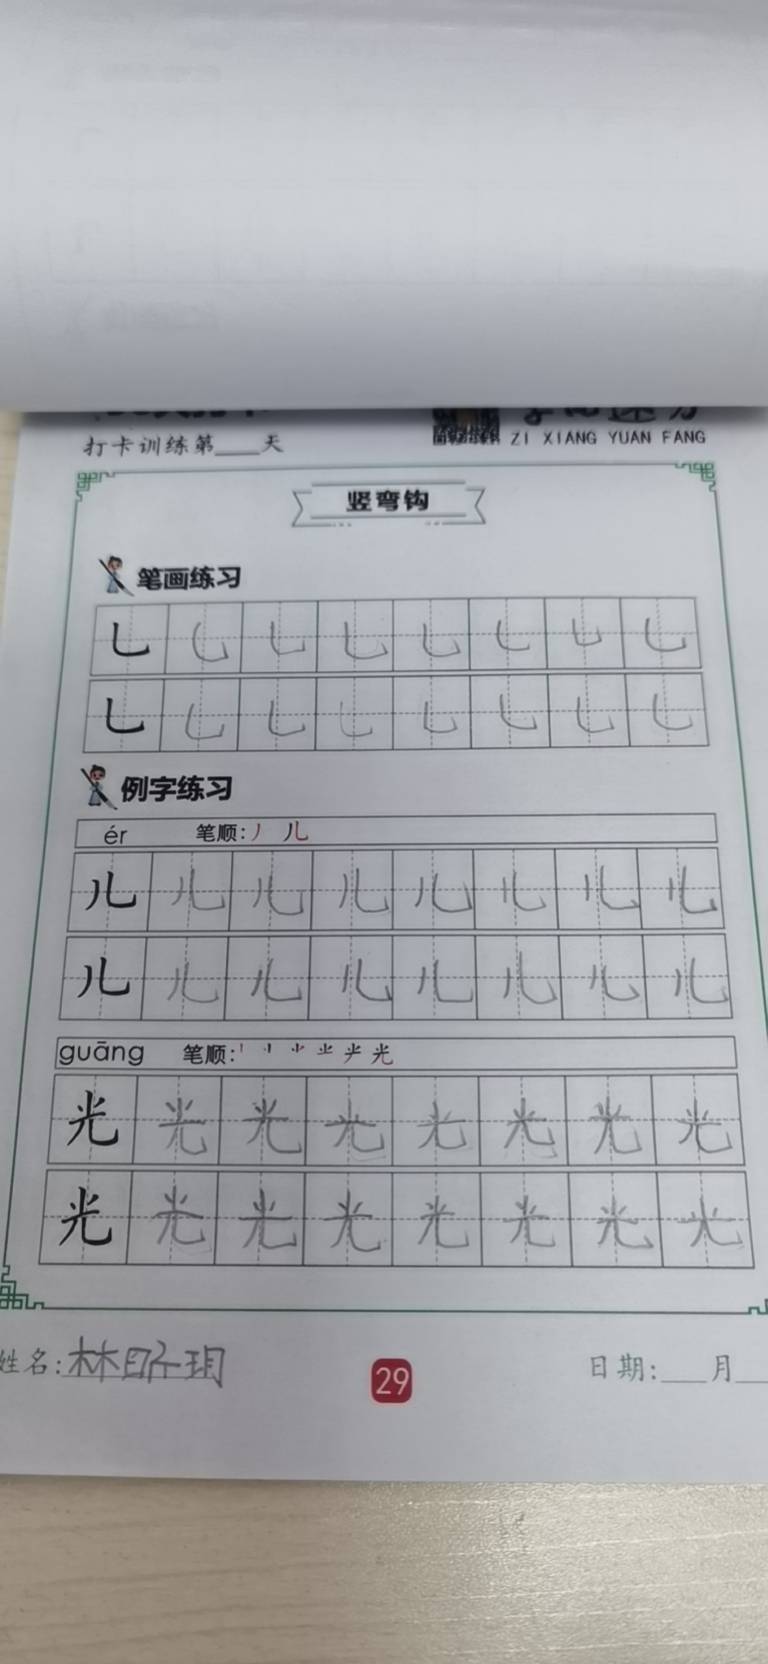 打卡训练第___天
ZI XIANG YUAN FANG
竖弯钩
笔画练习
乚 乚 乚 乚 乚 乚 乚 乚
乚 乚 乚 乚 乚 乚 乚 乚
例字练习
ér 笔顺:丿 儿
儿 儿 儿 儿 儿 儿 儿 儿
儿 儿 儿 儿 儿 儿 儿 儿
guāng 笔顺: 光
光 光 光 光 光 光 光 光
光 光 光 光 光 光 光 光
姓名:林 玥
29
日期:___月